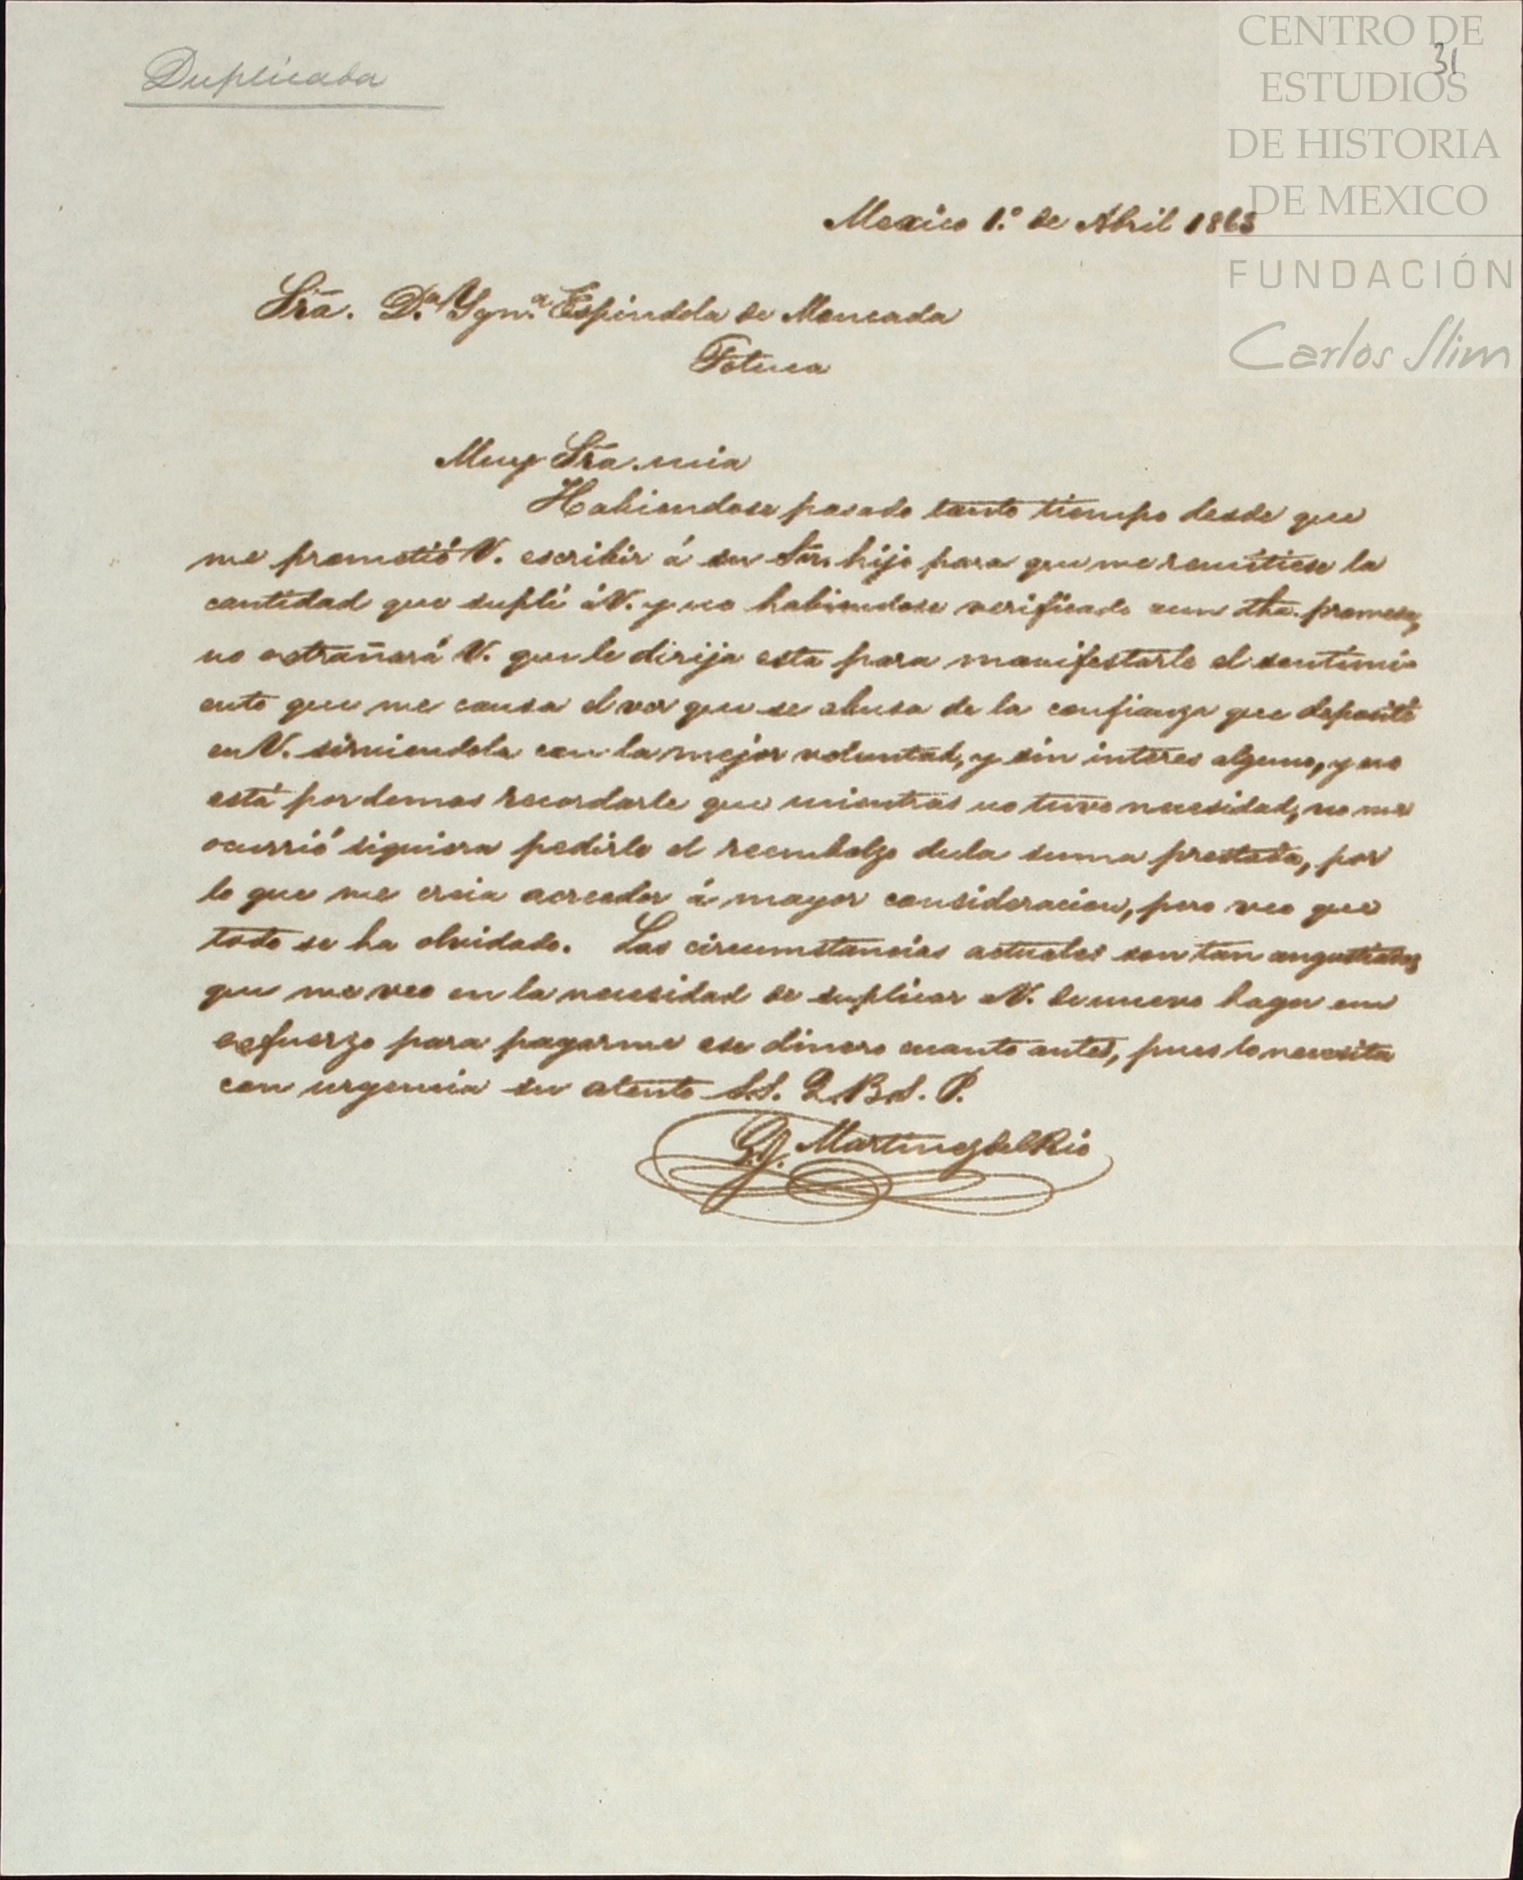 Duplicada
31
CENTRO DE
ESTUDIOS
DE HISTORIA
DE MEXICO
FUNDACIÓN
Carlos Slim
Mexico 1.º de Abril 1863
Sra. D.ª Ygn.ª Espindola de Moncada
Toluca
Muy Sra. mia
Habiendose pasado tanto tiempo desde que
me prometió V. escribir á su Sor. hijo para que me remitiese la
cantidad que suplí á V. y no habiendose verificado aun dha. promesa,
no extrañará V. que le dirija esta para manifestarle el sentimi-
ento que me causa el ver que se abusa de la confianza que deposité
en V. sirviendola con la mejor voluntad, y sin interes alguno, y no
está por demas recordarle que mientras no tuve necesidad, no me
ocurrió siquiera pedirle el reembolzo dela suma prestada, por
lo que me creia acreedor á mayor consideracion, pero veo que
todo se ha olvidado. Las circumstancias actuales son tan angustiadas
que me veo en la necesidad de suplicar á V. de nuevo haga un
esfuerzo para pagarme ese dinero cuanto antes, pues lo necesita
con urgencia su atento S.S. Q.B.S.P.
Martinez del Rio